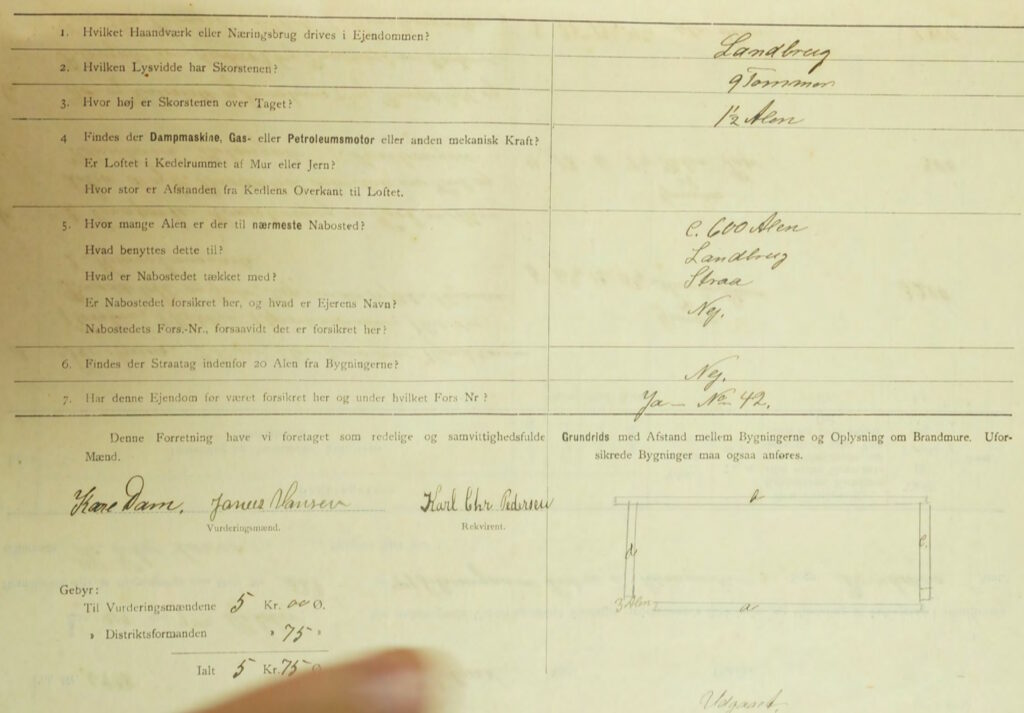 1. Hvilket Haandværk eller Næringsbrug drives i Ejendommen? Landbrug
2. Hvilken Lysvidde har Skorstenen? 9 Tommer
3. Hvor høj er Skorstenen over Taget? 1½ Alen
4 Findes der Dampmaskine, Gas- eller Petroleumsmotor eller anden mekanisk Kraft?
Er Loftet i Kedelrummet af Mur eller Jern?
Hvor stor er Afstanden fra Kedlens Overkant til Loftet.
5. Hvor mange Alen er der til nærmeste Nabosted? c. 600 Alen
Hvad benyttes dette til? Landbrug
Hvad er Nabostedet tækket med? Straa
Er Nabostedet forsikret her, og hvad er Ejerens Navn? Nej.
Nabostedets Fors.-Nr., forsaavidt det er forsikret her?
6. Findes der Straatag indenfor 20 Alen fra Bygningerne? Nej.
7. Har denne Ejendom før været forsikret her og under hvilket Fors Nr? Ja — No 42.
Denne Forretning have vi foretaget som redelige og samvittighedsfulde
Mænd.
Grundrids med Afstand mellem Bygningerne og Oplysning om Brandmure. Ufor-
sikrede Bygninger maa ogsaa anføres.
Dam. Hansen Karl Chr. Pedersen
Vurderingsmænd. Rekvirent.
3 Alen
a
Gebyr:
Til Vurderingsmændene 5 Kr. 00 Ø.
" Distriktsformanden " 75 "
Ialt 5 Kr. 75 Ø
Udgaaet.